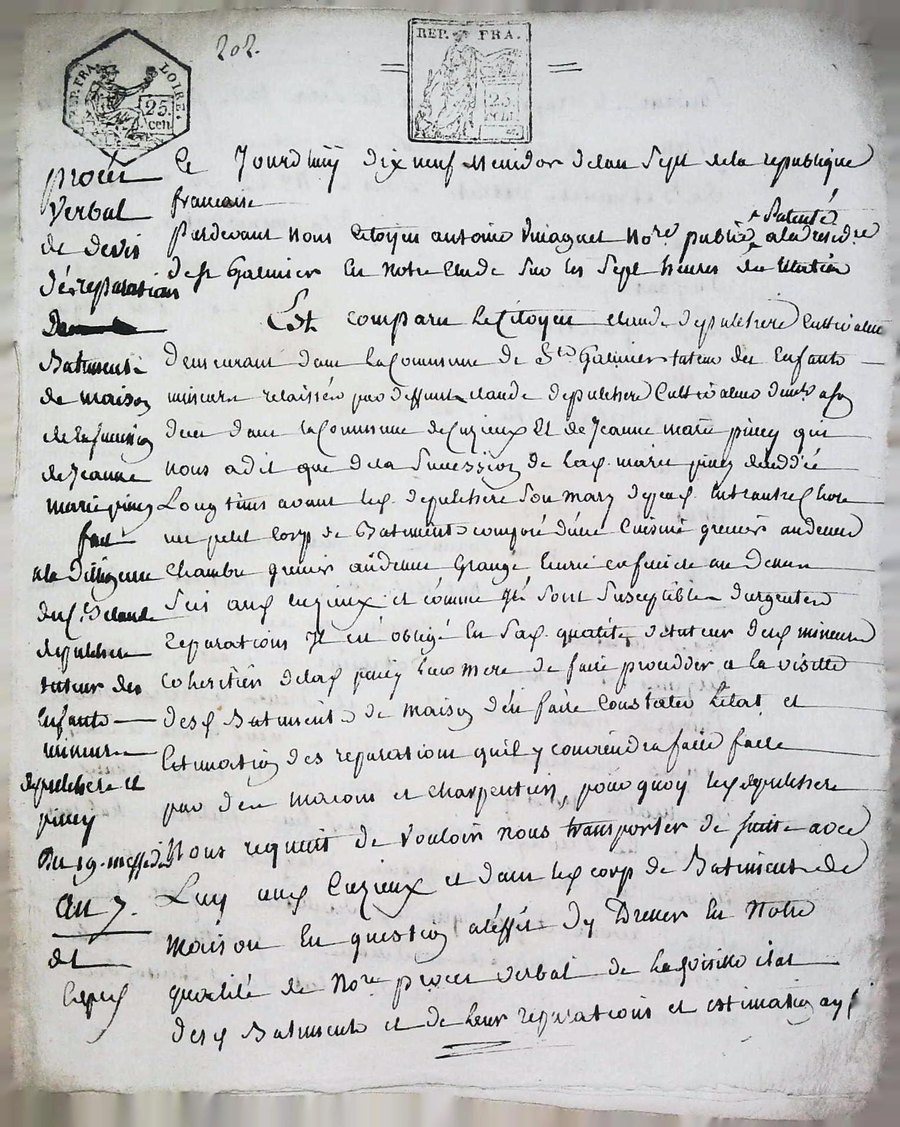 REP. FRA. LOIRE.
25. cen.
202.
REP. FRA.
25.
procès
Verbal
de devis
de réparations
Batiments
de maison
de la succession
de Jeanne
marie piney
fait
a la diligence
du C. Claude
depulchere
tuteur des
Enfants
mineurs
depulchere et
piney
Du 19. messidor
an 7.
Ce Jourdhuy dix neuf Messidor de lan Sept de la republique
francaise
Pardevant nous Citoyen antoine Nore. public patenté a la residce
de st Galmier En notre Etude Sur les Sept heures du matin
Est comparu le Citoyen claude depulchere Cultivateur
demeurant dans la Commune de St Galmier tuteur des Enfants
mineurs relaissés par deffunt claude depulchere Cultivateur
dans la Commune de Cuzieux Et de Jeanne marie piney qui
nous a dit que de la Succession de lad. marie piney deceddée
Longtems avant led. depulchere Son mary depend Entrautre chose
un petit Corps de Batiments composé d'une Cuisine grenier audessus
chambre grenier audessus Grange Ecurie au dessus
Sis aud. cuzieux et comme ils sont Susceptibles durgentes
reparations Il est obligé En sad. qualité de tuteur desd. mineurs
coheritiers de lad. piney Leur mere de faire procedder a la visitte
desd. Batiments de maison d'en faire Constater Letat et
Estimation des reparations quil y conviendra faire faire
par des macons et charpentiers, pourquoy led. depulchere
Nous requiert de vouloir nous transporter de suitte avec
Luy aud. Cuzieux et dans led. corps de Batiments de
maison En question a leffet dy Dresser En Notre
qualité de Nore. procès verbal de la visitte etat
desd. Batiments et de leurs reparations et estimation